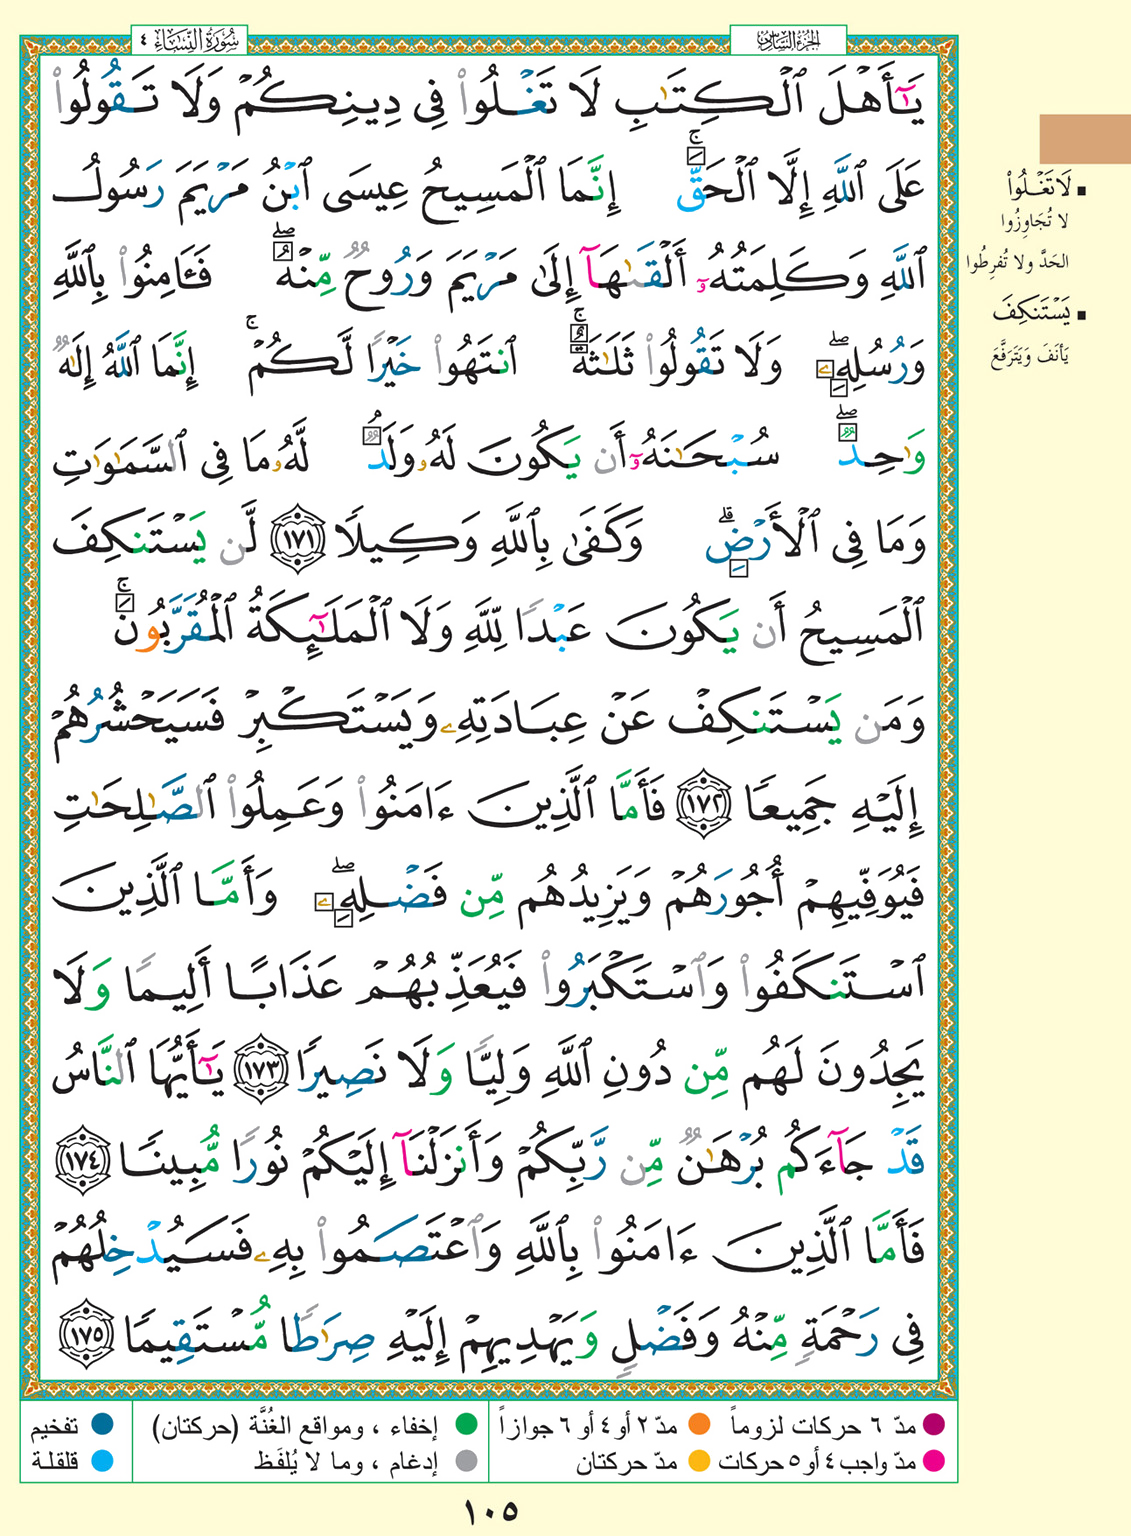 الجزء السادس
سُورَةُ النِّسَاءِ ٤
يَٰٓأَهۡلَ ٱلۡكِتَٰبِ لَا تَغۡلُواْ فِي دِينِكُمۡ وَلَا تَقُولُواْ
عَلَى ٱللَّهِ إِلَّا ٱلۡحَقَّۚ إِنَّمَا ٱلۡمَسِيحُ عِيسَى ٱبۡنُ مَرۡيَمَ رَسُولُ
ٱللَّهِ وَكَلِمَتُهُۥٓ أَلۡقَىٰهَآ إِلَىٰ مَرۡيَمَ وَرُوحٞ مِّنۡهُۖ فَـَٔامِنُواْ بِٱللَّهِ
وَرُسُلِهِۦۖ وَلَا تَقُولُواْ ثَلَٰثَةٌۚ ٱنتَهُواْ خَيۡرٗا لَّكُمۡۚ إِنَّمَا ٱللَّهُ إِلَٰهٞ
وَٰحِدٞۖ سُبۡحَٰنَهُۥٓ أَن يَكُونَ لَهُۥ وَلَدٞۘ لَّهُۥ مَا فِي ٱلسَّمَٰوَٰتِ
وَمَا فِي ٱلۡأَرۡضِۗ وَكَفَىٰ بِٱللَّهِ وَكِيلٗا ١٧١ لَّن يَسۡتَنكِفَ
ٱلۡمَسِيحُ أَن يَكُونَ عَبۡدٗا لِّلَّهِ وَلَا ٱلۡمَلَٰٓئِكَةُ ٱلۡمُقَرَّبُونَۚ
وَمَن يَسۡتَنكِفۡ عَنۡ عِبَادَتِهِۦ وَيَسۡتَكۡبِرۡ فَسَيَحۡشُرُهُمۡ
إِلَيۡهِ جَمِيعٗا ١٧٢ فَأَمَّا ٱلَّذِينَ ءَامَنُواْ وَعَمِلُواْ ٱلصَّٰلِحَٰتِ
فَيُوَفِّيهِمۡ أُجُورَهُمۡ وَيَزِيدُهُم مِّن فَضۡلِهِۦۖ وَأَمَّا ٱلَّذِينَ
ٱسۡتَنكَفُواْ وَٱسۡتَكۡبَرُواْ فَيُعَذِّبُهُمۡ عَذَابًا أَلِيمٗا وَلَا
يَجِدُونَ لَهُم مِّن دُونِ ٱللَّهِ وَلِيّٗا وَلَا نَصِيرٗا ١٧٣ يَٰٓأَيُّهَا ٱلنَّاسُ
قَدۡ جَآءَكُم بُرۡهَٰنٞ مِّن رَّبِّكُمۡ وَأَنزَلۡنَآ إِلَيۡكُمۡ نُورٗا مُّبِينٗا ١٧٤
فَأَمَّا ٱلَّذِينَ ءَامَنُواْ بِٱللَّهِ وَٱعۡتَصَمُواْ بِهِۦ فَسَيُدۡخِلُهُمۡ
فِي رَحۡمَةٖ مِّنۡهُ وَفَضۡلٖ وَيَهۡدِيهِمۡ إِلَيۡهِ صِرَٰطٗا مُّسۡتَقِيمٗا ١٧٥
لَا تَغۡلُواْ
لا تُجَاوِزُوا
الحَدَّ ولا تُفرِطُوا
يَسۡتَنكِفَ
يَأنَفَ وَيَتَرَفَّعَ
مدّ ٦ حركات لزوماً مدّ ٢ أو ٤ أو ٦ جوازاً إخفاء ، ومواقع الغُنَّة (حركتان) تفخيم
مدّ واجب ٤ أو ٥ حركات مدّ حركتان إدغام ، وما لا يُلفَظ قلقلة
١٠٥